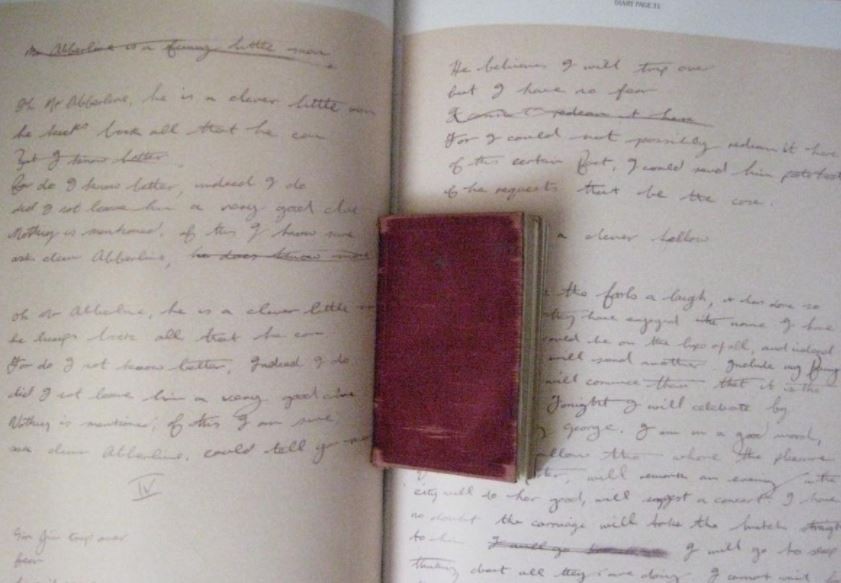 Mr Abberline is a funny little man
Oh Mr Abberline, he is a clever little man
he keeps back all that he can
But I know better
For do I know better, indeed I do
did I not leave him a very good clue
Nothing is mentioned, of this I know sure
ask clever Abberline, he does know more
oh Mr Abberline, he is a clever little
he keeps back all that he can
For do I not know better, Indeed I do
did I not leave him a very good clue
Nothing is mentioned, of this I am sure
ask clever Abberline, could tell you more
IV
Sir Jim trip over
fear
DIARY PAGE 31
He believes I will trip over
but I have no fear
I redeem it here
For I could not possibly redeem it here
of this certain fact, I could send him
if he requests that be the case.
a clever fellow
the fools a laugh, it has done so
they have enjoyed the name I have
would be on the lips of all, and indeed
will send another. Include my
will convince them that it is the
Tonight I will celebrate by
George. I am in a good mood,
allow the whore the pleasure
will an evening in the
city will do her good, will suggest a concert. I have
no doubt the carriage will take the bitch straight
to him I will go I will go to sleep
thinking about all they are doing. I cannot wait for